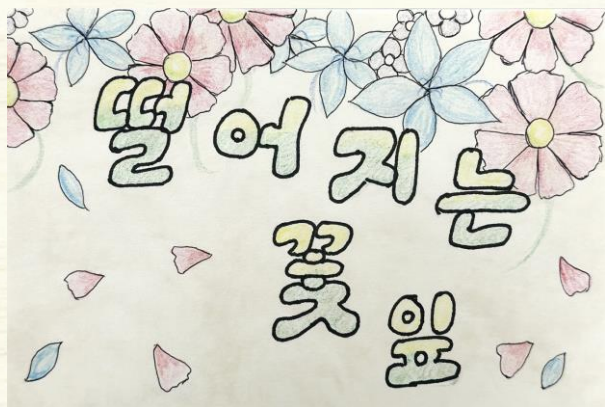 떨어지는
꽃
잎